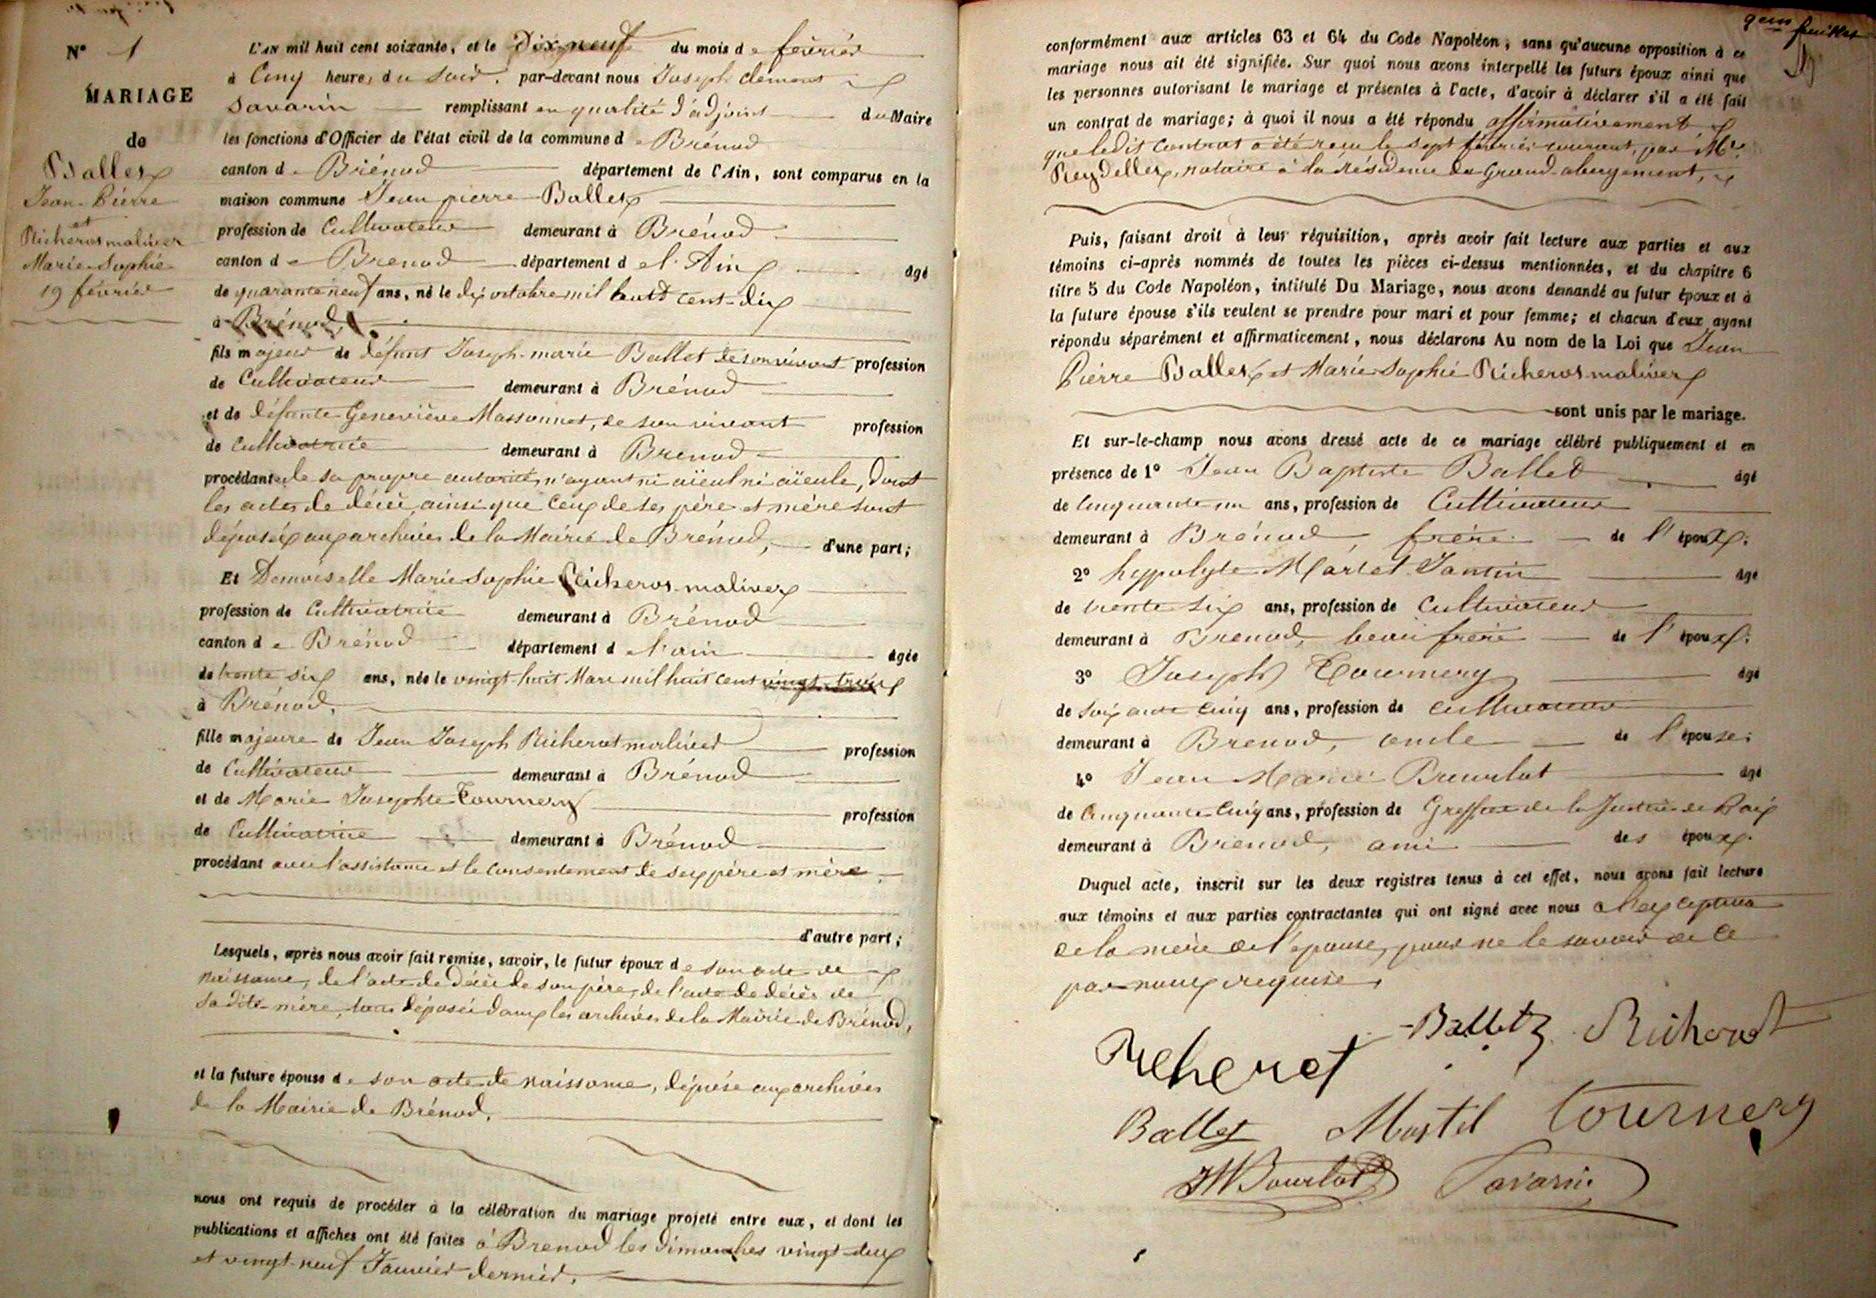 N° 1
MARIAGE
de
Ballet
Jean Pierre
et
Richerot maliver
Marie Sophie
19 février
L'AN mil huit cent soixante, et le Dix neuf du mois de février
à Cinq heures du soir, par-devant nous Joseph clément
Savarin remplissant en qualité d'adjoint du Maire
les fonctions d'Officier de l'état civil de la commune de Brénod
canton de Brénod département de l'Ain, sont comparus en la
maison commune Jean pierre Ballet
profession de Cultivateur demeurant à Brénod
canton de Brénod département de l'Ain âgé
de quarante neuf ans, né le dix octobre mil huit cent dix
à Brénod,
fils majeur de défunt Joseph marie Ballet de son vivant profession
de Cultivateur demeurant à Brénod
et de défunte Geneviève Massonnet, de son vivant profession
de cultivatrice demeurant à Brénod
procédant de sa propre autorité, n'ayant ni aïeul ni aïeule, dont
les actes de décès, ainsi que ceux de ses père et mère sont
déposés aux archives de la Mairie de Brénod, d'une part;
Et Demoiselle Marie Sophie Richerot maliver
profession de Cultivatrice demeurant à Brénod
canton de Brénod département de l'ain âgée
de trente six ans, née le vingt huit Mars mil huit cent vingt trois
à Brénod,
fille majeure de Jean Joseph Richerot maliver profession
de Cultivateur demeurant à Brénod
et de Marie Josephte Tournery profession
de Cultivatrice demeurant à Brénod
procédant avec l'assistance et le consentement de ses père et mère.
d'autre part;
Lesquels, après nous avoir fait remise, savoir, le futur époux de son acte de
naissance, de l'acte de décès de son père, de l'acte de décès de
sa dite mère, tous déposés dans les archives de la Mairie de Brénod,
et la future épouse de son acte de naissance, déposé aux archives
de la Mairie de Brénod.
nous ont requis de procéder à la célébration du mariage projeté entre eux, et dont les
publications et affiches ont été faites à Brenod les dimanches vingt deux
et vingt neuf Janvier dernier.
feuillet
conformément aux articles 63 et 64 du Code Napoléon, sans qu'aucune opposition à ce
mariage nous ait été signifiée. Sur quoi nous avons interpellé les futurs époux ainsi que
les personnes autorisant le mariage et présentes à l'acte, d'avoir à déclarer s'il a été fait
un contrat de mariage; à quoi il nous a été répondu affirmativement
que ledit contrat a été reçu le sept février courant, par Me
Reydellet, notaire à la résidence du Grand-abergement,
Puis, faisant droit à leur réquisition, après avoir fait lecture aux parties et aux
témoins ci-après nommés de toutes les pièces ci-dessus mentionnées, et du chapitre 6
titre 5 du Code Napoléon, intitulé Du Mariage, nous avons demandé au futur époux et à
la future épouse s'ils veulent se prendre pour mari et pour femme; et chacun d'eux ayant
répondu séparément et affirmativement, nous déclarons Au nom de la Loi que Jean
Pierre Ballet et Marie Sophie Richerot maliver
sont unis par le mariage.
Et sur-le-champ nous avons dressé acte de ce mariage célébré publiquement et en
présence de 1° Jean Baptiste Ballet âgé
de Cinquante un ans, profession de Cultivateur
demeurant à Brénod, frère de l'époux;
2° hypolyte Martel Tantin âgé
de trente six ans, profession de Cultivateur
demeurant à Brenod, beau frère de l'époux;
3° Joseph Tournery âgé
de soixante cinq ans, profession de cultivateur
demeurant à Brenod, oncle de l'épouse;
4° Jean Marie Bourlot âgé
de Cinquante cinq ans, profession de Greffier de la Justice de Paix
demeurant à Brenod, ami des époux.
Duquel acte, inscrit sur les deux registres tenus à cet effet, nous avons fait lecture
aux témoins et aux parties contractantes qui ont signé avec nous à l'exception
de la mère de l'épouse, pour ne le savoir de ce
par nous requise.
Richerot Ballet Richerot
Ballet Martel Tournery
JM Bourlot Savarin